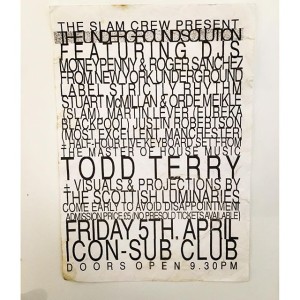 THE SLAM CREW PRESENT
THE UNDERGROUND SOLUTION
FEATURING DJS
MONEYPENNY & ROGER SANCHEZ
FROM NEW YORK UNDERGROUND
LABEL STRICTLY RHYTHM
STUART McMILLAN & ORDE MEIKLE
(SLAM), MARTIN LEVER (EUREKA
BLACKPOOL), JUSTIN ROBERTSON
(MOST EXCELLENT, MANCHESTER)
+ HALF-HOUR LIVE KEYBOARD SET FROM
THE MASTER OF HOUSE MUSIC
TODD TERRY
+ VISUALS & PROJECTIONS BY
THE SCOTTISH LUMINARIES
COME EARLY TO AVOID DISAPPOINTMENT
ADMISSION PRICE £5 (NO PRESOLD TICKETS AVAILABLE)
FRIDAY 5TH, APRIL
ICON-SUB CLUB
DOORS OPEN 9.30PM